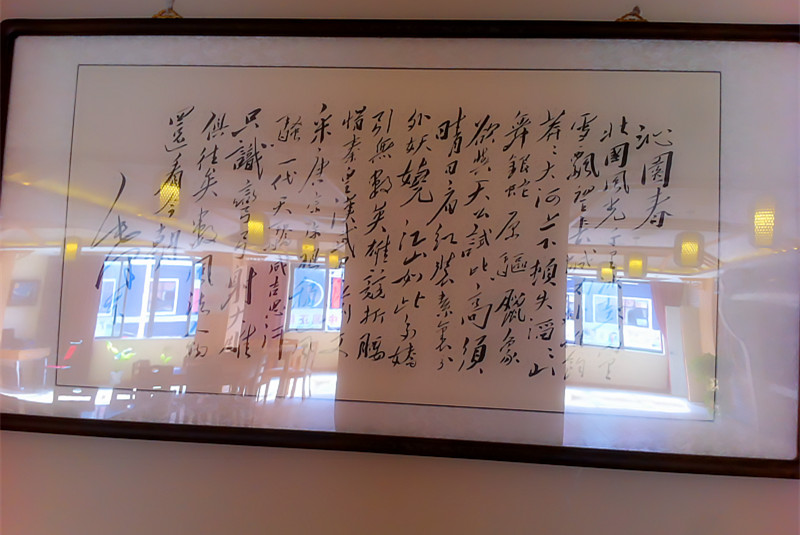 沁園春
北國風光千里
雪飄望長城
莽〻大河上下頓失滔〻山
舞銀蛇原驅臘象
欲與天公試比高須
晴日看紅裝素裹分
外妖嬈江山如此多嬌
引無數英雄競折腰
惜秦皇漢武
采唐宗宋祖稍
騷一代天驕成吉思汗
只識彎弓射大雕
俱往矣數風流人物
還看今朝